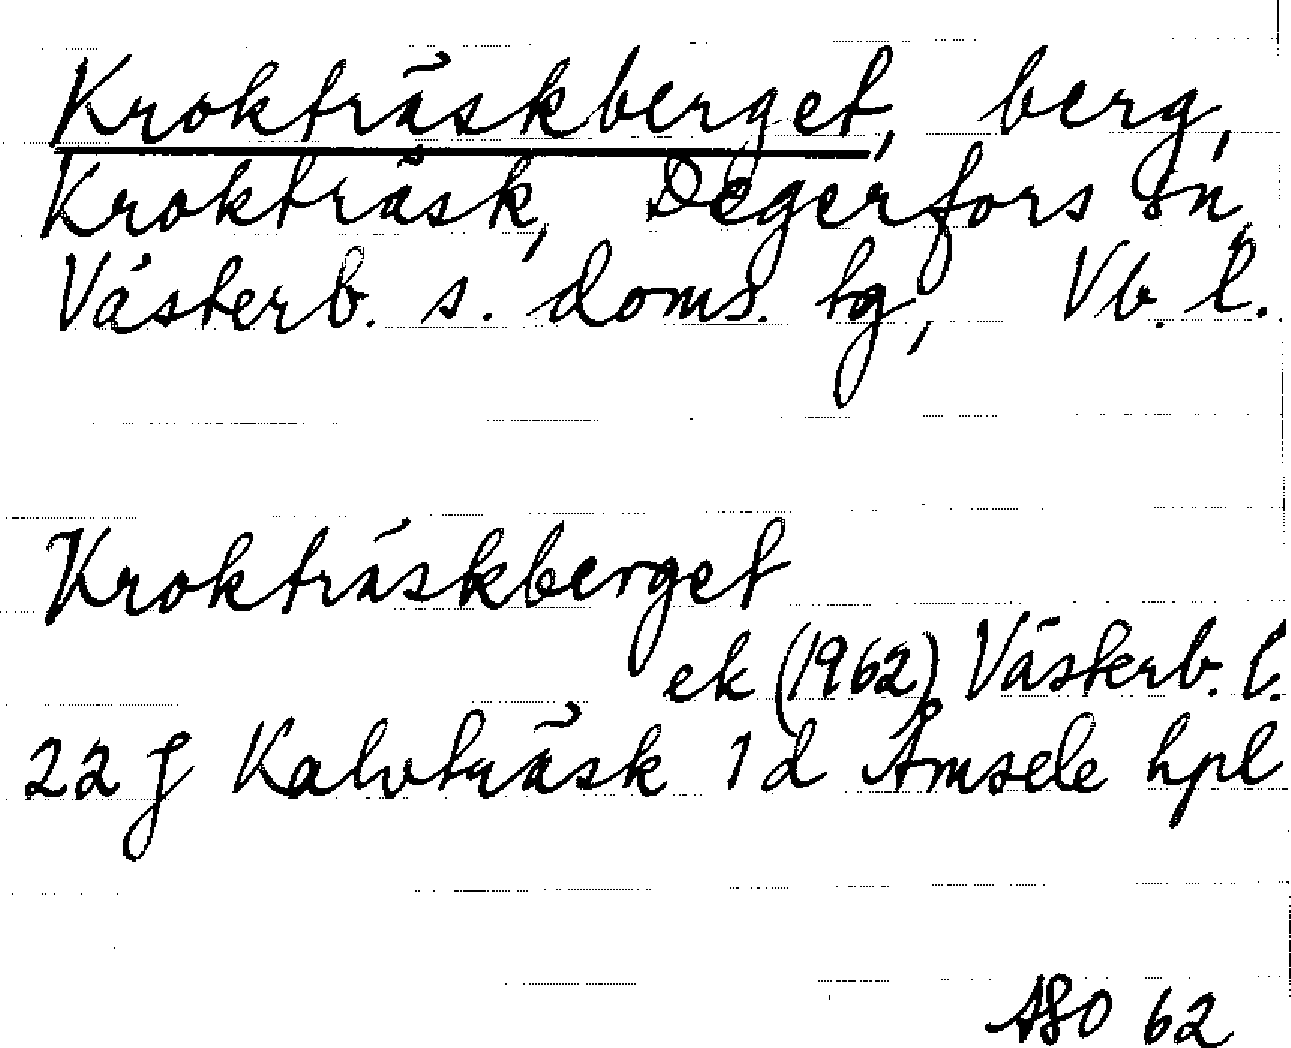 Krokträskberget, berg,
Krokträsk, Degerfors sn,
Västerb. s. doms. tg, Vb. l.
Krokträskberget
ek (1962) Västerb. l.
22 J Kalvträsk 1 d Åmsele hpl
62